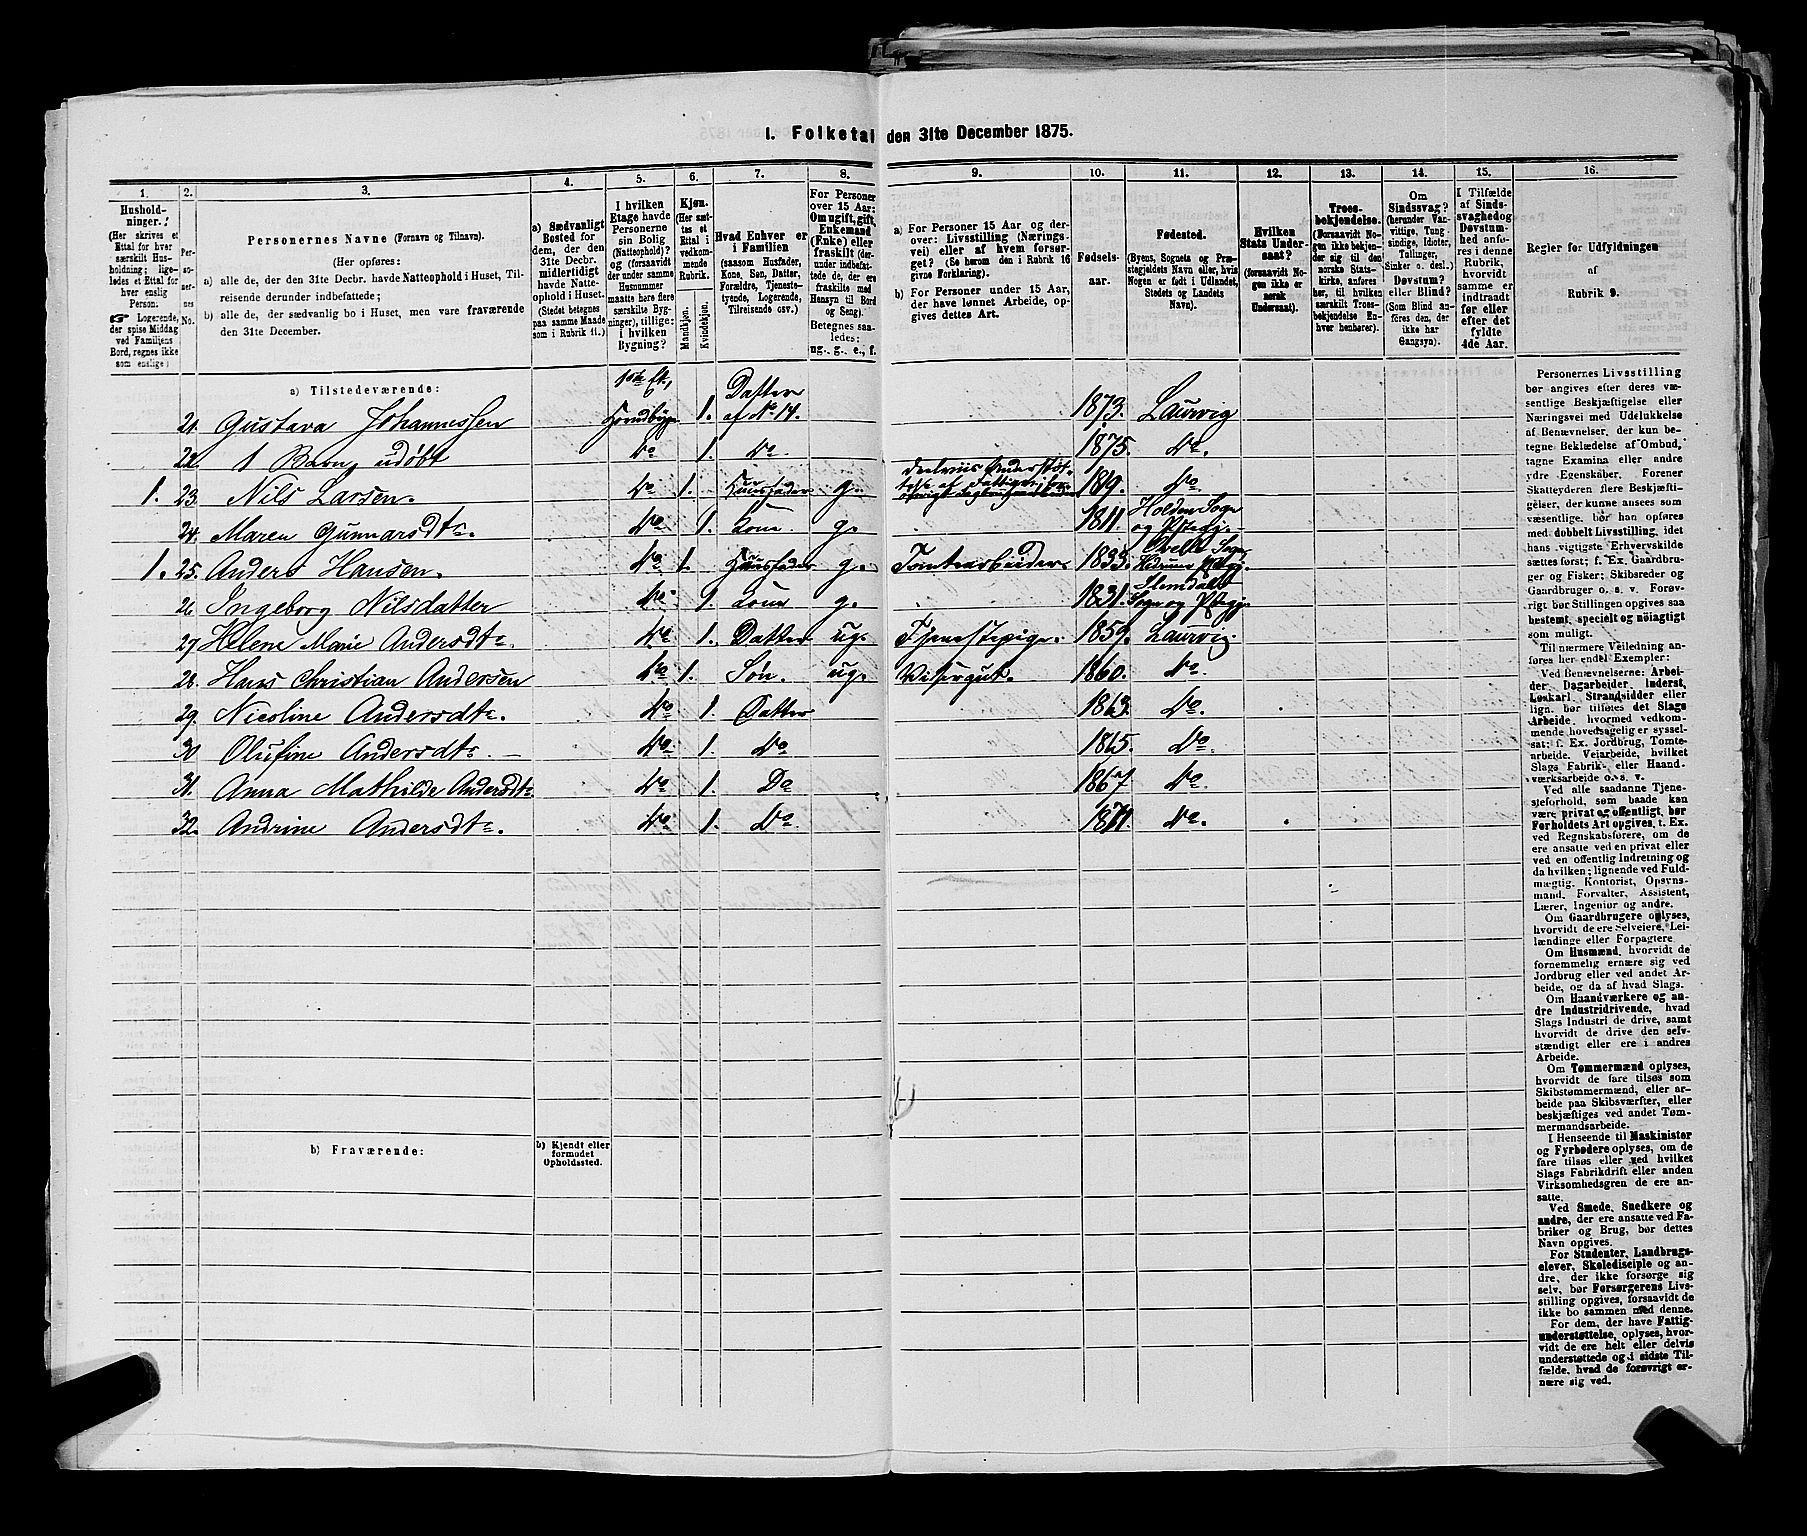 I. Folketal den 31te December 1875.
1.
2.
3.
4.
5.
6.
7.
8.
9.
10.
11.
12.
13.
14.
15.
16.
Hushold-
ninger.
(Her skrives et
Ettal for hver
særskilt Hus-
holdning; lige-
ledes et Ettal for
hver enslig
Person.
☞ Logerende,
der spise Middag
ved Familiens
Bord, regnes ikke
som enslige)
Per-
so-
ner-
nes
No.
Personernes Navne (Fornavn og Tilnavn).
(Her opføres:
a) alle de, der den 31te Decbr. havde Natteophold i Huset, Til-
reisende derunder indbefattede;
b) alle de, der sædvanlig bo i Huset, men vare fraværende
den 31te December.
a) Sædvanligt
Bosted for
dem, der den
31te Decbr.
midlertidigt
havde Natte-
ophold i Huset.
(Stedet betegnes
paa samme Maade
som i Rubrik 11.)
I hvilken
Etage havde
Personerne
sin Bolig
(Natteophold)?
og (forsaavidt
der under samme
Husnummer
maatte høre flere
særskilte Byg-
ninger), tillige:
i hvilken
Bygning?
Kjøn.
(Her sæt-
tes et
Ettal i
vedkom-
mende
Rubrik.
Mandkjøn.
Kvindekjøn.
Hvad Enhver er
i Familien
(saasom Husfader,
Kone, Søn, Datter,
Forældre, Tjeneste-
tyende, Logerende,
Tilreisende osv.)
For Personer
over 15 Aar:
Om ugift, gift,
Enkemand
(Enke) eller
fraskilt (der-
under indbefat-
tede de, der ere
fraskilte med
Hensyn til Bord
og Seng).
Betegnes saa-
ledes:
ug., g., e., f.
a) For Personer 15 Aar og der-
over: Livsstilling (Nærings-
vei) eller af hvem forsør-
get? (Se herom den i Rubrik 16
givne Forklaring).
b) For Personer under 15 Aar,
der have lønnet Arbeide, op-
gives dettes Art.
Fødsels-
aar.
Fødested.
(Byens, Sognets og Præ-
stegjeldets Navn eller, hvis
Nogen er født i Udlandet,
Stedets og Landets
Navn).
Hvilken
Stats Under-
saat?
(forsaavidt No-
gen ikke er
norsk
Undersaat).
Troes-
bekjendelse.
(Forsaavidt No-
gen ikke bekjen-
der sig til den
norske Stats-
kirke, anføres
her, til hvilken
særskilt Troes-
bekjendelse En-
hver henhører).
Om
Sindssvag?
(herunder Van-
vittige, Tung-
sindige, Idioter,
Tullinger,
Sinker o. desl.)
Døvstum?
eller Blind?
(Som Blind an-
føres den, der
ikke har
Gangsyn).
I Tilfælde
af Sinds-
svaghed og
Døvstum-
hed anfø-
res i denne
Rubrik,
hvorvidt
samme er
indtraadt
før eller
efter det
fyldte
4de Aar.
Regler for Udfyldningen
af
Rubrik 9.
a) Tilstedeværende:
21. Gustava Johannessen 1ste Et, 1. Datter af No. 14. 1873. Laurvig
22. 1 Barn, udøbt Do 1. Do. 1875. Do.
1. 23. Nils Larsen. Do 1. Huusfader g. 1819. Do
24. Maren Gunnarsdtr. Do 1. Kone g. 1811. Holden Sogn og Pstegj.
1. 25. Anders Hansen. Do 1. Huusfader g. Tomtearbeider. 1833. Sogn, Pstegj.
26. Ingeborg Nilsdatter Do 1. Kone g. 1831. Sogn og Pstegj.
27. Helene Marie Andersdtr. Do 1. Datter ug. Tjenestepige. 1857. Laurvig.
28. Hans Christian Andersen Do 1. Søn. ug. Visergut. 1860. Do.
29. Nicoline Andersdtr. Do. 1. Datter 1863. Do.
30 Olufine Andersdtr. Do. 1. Do 1865. Do.
31. Anna Mathilde Andersdtr. Do 1. Do 1867 Do.
32. Andrine Andersdtr. Do. 1. Do. 1871. Do.
b) Fraværende:
b) Kjendt eller
formodet
Opholdssted.
Personernes Livsstilling
bør angives efter deres væ-
sentlige Beskjæftigelse eller
Næringsvei med Udelukkelse
af Benævnelser, der kun be-
tegne Beklædelse af Ombud,
tagne Examina eller andre
ydre Egenskaber. Forener
Skatteyderen flere Beskjæfti-
gelser, der kunne ansees som
væsentlige, bør han opføres
med dobbelt Livsstilling, idet
hans vigtigste Erhvervskilde
sættes først; f. Ex. Gaardbru-
ger og Fisker; Skibsreder og
Gaardbruger o. s. v. Forøv-
rigt bør Stillingen opgives saa
bestemt, specielt og nøiagtigt
som muligt.
Til nærmere Veiledning an-
føres her endel Exempler:
Ved Benævnelserne: Arbei-
der, Dagarbeider, Inderst,
Løskarl, Strandsidder eller
lign. bør tilføies det Slags
Arbeide, hvormed vedkom-
mende hovedsagelig er syssel-
sat; f. Ex. Jordbrug, Tomte-
arbeide, Veiarbeide, hvilket
Slags Fabrik- eller Haand-
værksarbeide o. s. v.
Ved alle saadanne Tjene-
steforhold, som baade kan
være privat og offentligt, bør
Forholdets Art opgives, t. Ex.
ved Regnskabsførere, om de
ere ansatte ved en privat eller
ved en offentlig Indretning og
da hvilken; lignende ved Fuld-
mægtig, Kontorist, Opsyns-
mand, Forvalter, Assistent,
Lærer, Ingeniør og andre.
Om Gaardbrugere oplyses,
hvorvidt de ere Selveiere, Lei-
lændinge eller Forpagtere.
Om Husmænd, hvorvidt de
fornemmelig ernære sig ved
Jordbrug eller ved andet Ar-
beide, og da af hvad Slags.
Om Haandværkere og an-
dre Industridrivende, hvad
Slags Industri de drive, samt
hvorvidt de drive den selv-
stændigt eller ere i andres
Arbeide.
Om Tømmermænd oplyses,
hvorvidt de fare tilsøs som
Skibstømmermænd, eller ar-
beide paa Skibsværfter, eller
beskjæftiges ved andet Tøm-
mermandsarbeide.
I Henseende til Maskinister
og Fyrbødere oplyses, om de
fare tilsøs eller ved hvilket
Slags Fabrikdrift eller anden
Virksomhedsgren de ere an-
satte.
Ved Smede, Snedkere og
andre, der ere ansatte ved Fa-
briker og Brug, bør dettes
Navn opgives.
For Studenter, Landbrugs-
elever, Skoledisciple og an-
dre, der ikke forsørge sig
selv, bør Forsørgerens Livs-
stilling opgives, forsaavidt de
ikke bo sammen med denne.
For dem, der have Fattig-
understøttelse, oplyses, hvor-
vidt de ere helt eller delvis
understøttede og i sidste Til-
fælde, hvad de forøvrigt er-
nære sig ved.